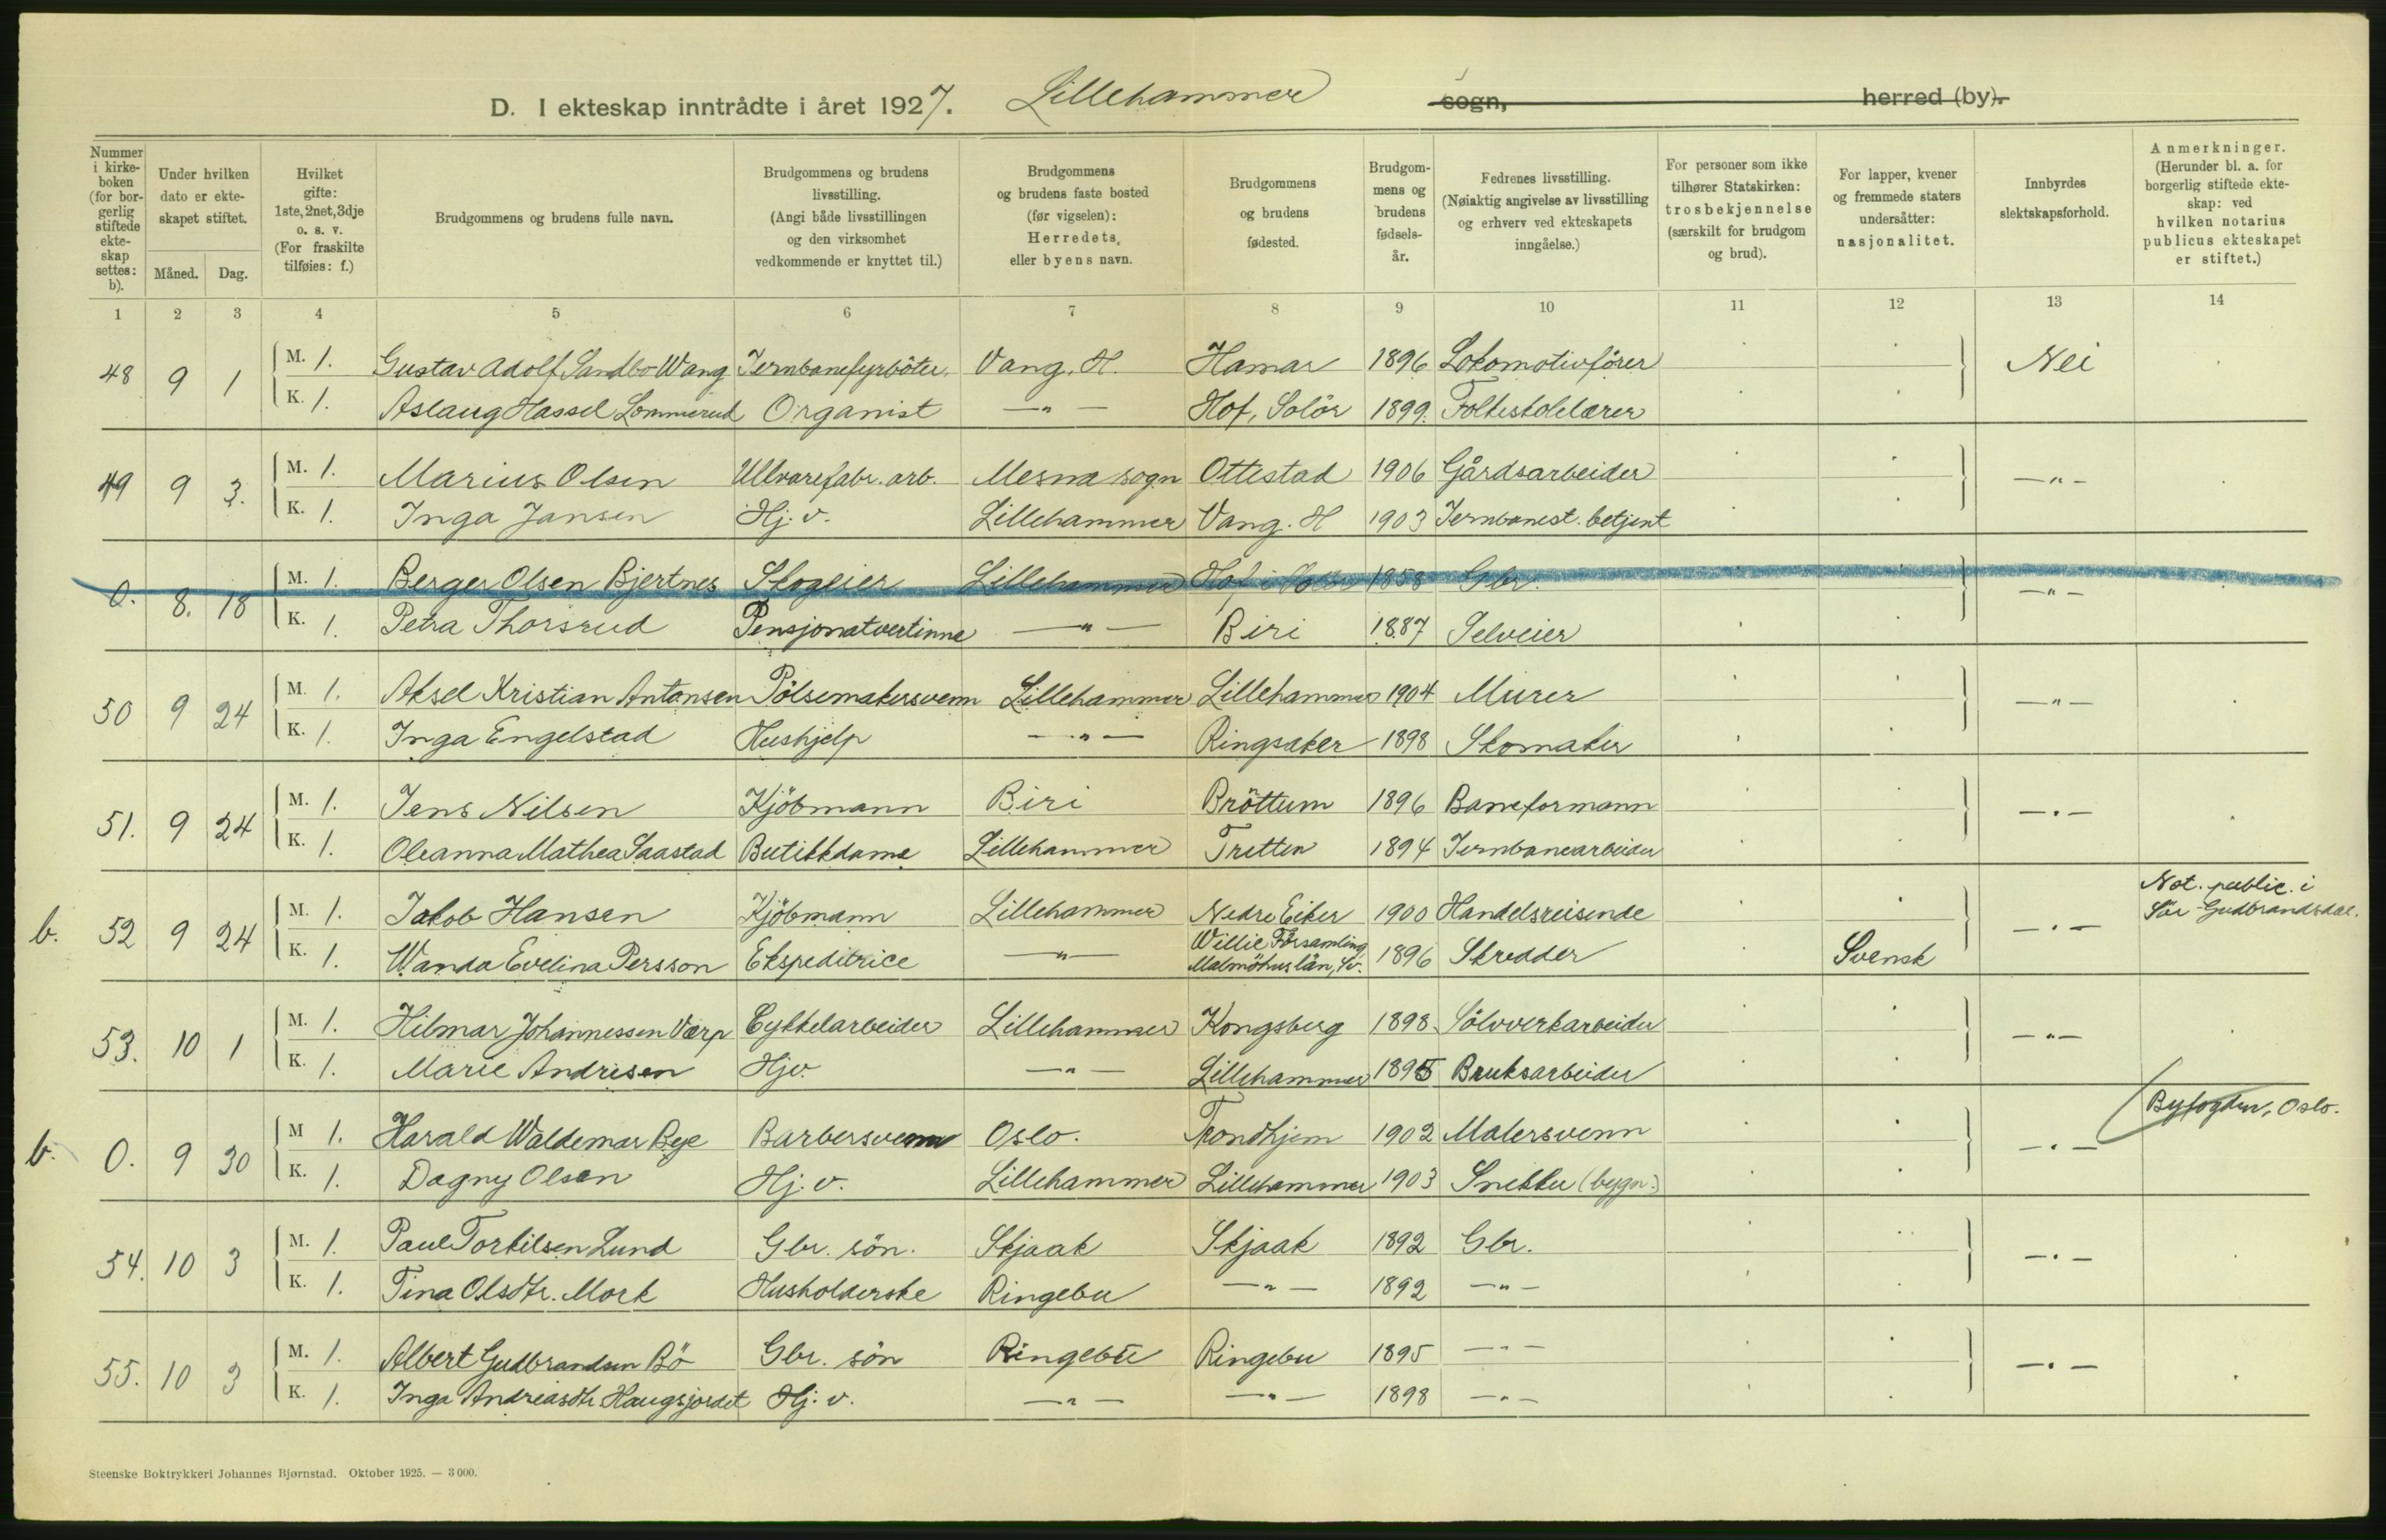 D. I ekteskap inntrådte i året 1927. Lillehammer sogn, herred (by).
Nummer i kirkeboken (for borgerlig stiftede ekteskap settes: b). Under hvilken dato er ekteskapet stiftet. Måned. Dag. Hvilket gifte: 1ste, 2net, 3dje o. s. v. (For fraskilte tilføies: f.) Brudgommens og brudens fulle navn. Brudgommens og brudens livsstilling. (Angi både livsstillingen og den virksomhet vedkommende er knyttet til.) Brudgommens og brudens faste bosted (før vigselen): Herredets, eller byens navn. Brudgommens og brudens fødested. Brudgommens og brudens fødselsår. Fedrenes livsstilling. (Nøiaktig angivelse av livsstilling og erhverv ved ekteskapets inngåelse.) For personer som ikke tilhører Statskirken: trosbekjennelse (særskilt for brudgom og brud). For lapper, kvener og fremmede staters undersåtter: nasjonalitet. Innbyrdes slektskapsforhold. Anmerkninger. (Herunder bl. a. for borgerlig stiftede ekteskap: ved hvilken notarius publicus ekteskapet er stiftet.)
1 2 3 4 5 6 7 8 9 10 11 12 13 14
48 9 1 M. 1. Gustav Adolf Sandbo Wang Jernbanefyrböter. Vang. H. Hamar 1896 Lokomotivförer Nei
K. 1. Aslaug Hassel Lommerud Organist —"— Hof, Solör 1899. Folkeskolelærer
49 9 3. M. 1. Marius Olsen Ullvarefabr. arb. Mesna sogn Ottestad 1906 Gårdsarbeider —"—
K. 1. Inga Jansen Hj. v. Lillehammer Vang. H 1903 Jernbanest. betjent
0. 8. 18 M. 1. Berger Olsen Bjertnes Skogeier Lillehammer Hof i Solör 1858 Gbr. —"—
K. 1. Petra Thorsrud Pensjonatvertinne —"— Biri 1887 Selveier
50 9 24 M. 1. Aksel Kristian Antonsen Pölsemakersvenn Lillehammer Lillehammer 1904 Murer —"—
K. 1. Inga Engelstad Hushjelp —"— Ringsaker 1898 Skomaker
51. 9 24 M. 1. Jens Nilsen Kjöbmann Biri Bröttum 1896 Baneformann —"—
K. 1. Oleanna Mathea Saastad Butikkdame Lillehammer Tretten 1894 Jernbanearbeider
b. 52 9 24 M. 1. Jakob Hansen Kjöbmann Lillehammer Nedre Eiker 1900 Handelsreisende —"— Not. public. i Sör-Gudbrandsdal.
K. 1. Wanda Evelina Persson Ekspeditrice —"— Willie Församling Malmöhus län, Sv. 1896 Skredder Svensk
53. 10 1 M. 1. Hilmar Johannessen Værp Cykkelarbeider Lillehammer Kongsberg 1898 Sölvverkarbeider —"—
K. 1. Marie Andresen Hjv. —"— Lillehammer 1895 Bruksarbeider
b. 0. 9 30 M 1. Harald Waldemar Bye Barbersvenn Oslo. Trondhjem 1902 Malersvenn —"— Byfogden, Oslo.
K. 1. Dagny Olsen Hj. v. Lillehammer Lillehammer 1903 Snekker (bygn.)
54. 10 3 M. 1. Paul Torkilsen Lund Gbr. sön. Skjaak Skjaak 1892 Gbr. —"—
K. 1. Tina Olsdtr. Mork Husholderske Ringebu —"— 1892 —"—
55. 10 3 M. 1. Albert Gudbrandsen Bö Gbr. sön Ringebu Ringebu 1895 —"— —"—
K. 1. Inga Andreasdtr Haugsjordet Hj. v. —"— —"— 1898 —"—
Steenske Boktrykkeri Johannes Bjørnstad. Oktober 1925. — 3 000.